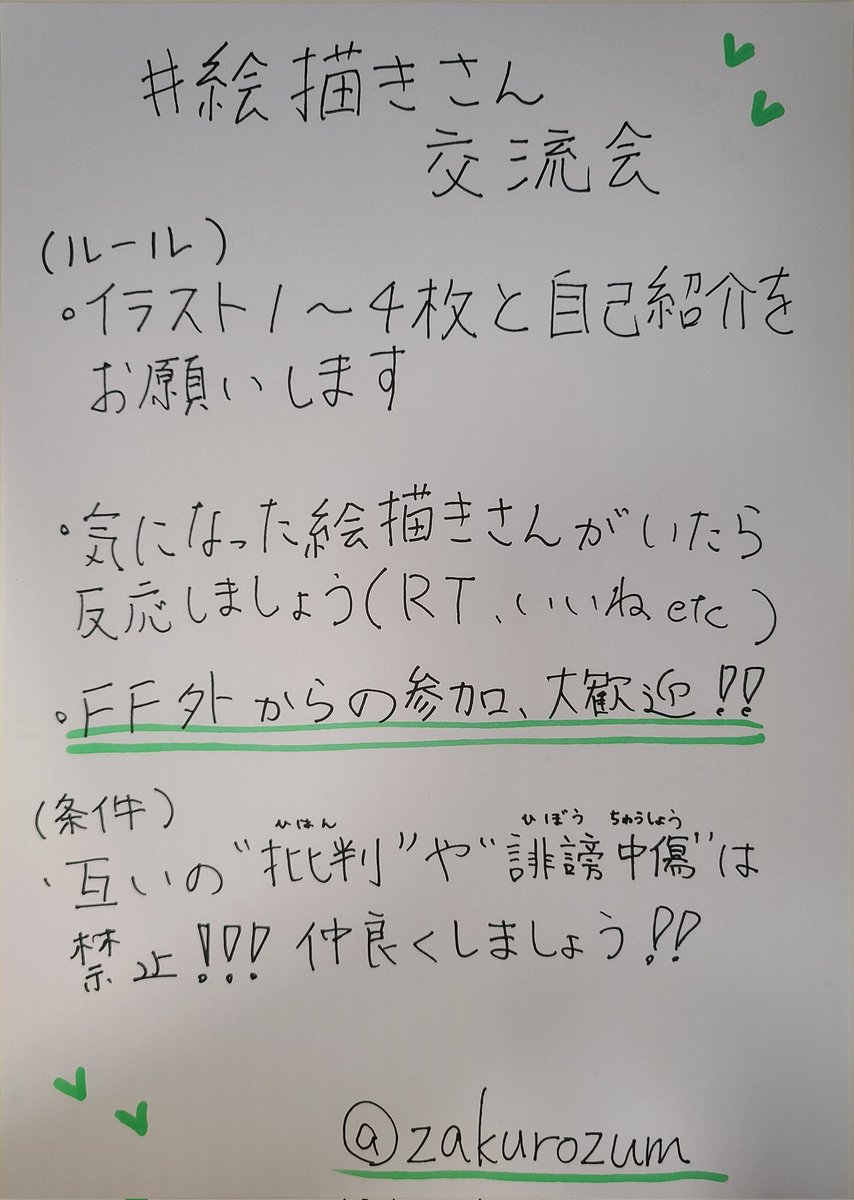 #絵描きさん
交流会
(ルール)
・イラスト1〜4枚と自己紹介を
お願いします
・気になった絵描きさんがいたら
反応しましょう(RT、いいねetc)
・FF外からの参加、大歓迎!!
(条件)
ひはん ひぼう ちゅうしょう
・互いの"批判"や"誹謗中傷"は
禁止!!! 仲良くしましょう!!
@zakurozum